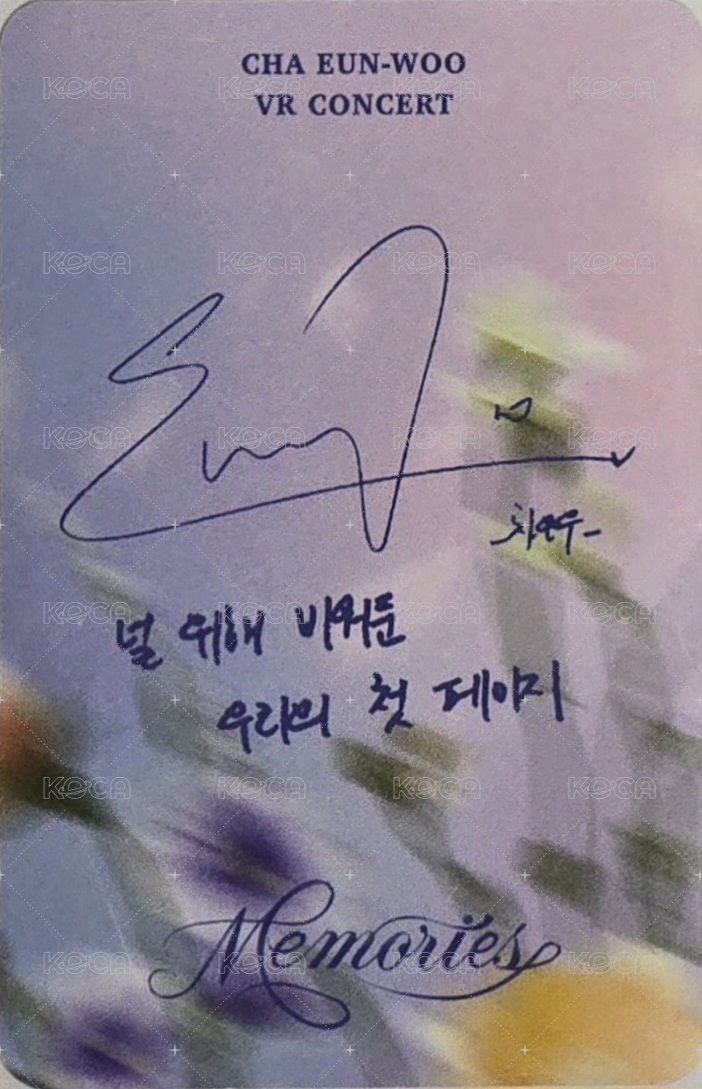 CHA EUN-WOO
VR CONCERT
Eun
차은우
널 위해 비워둔
우리의 첫 페이지
Memories
KOCA